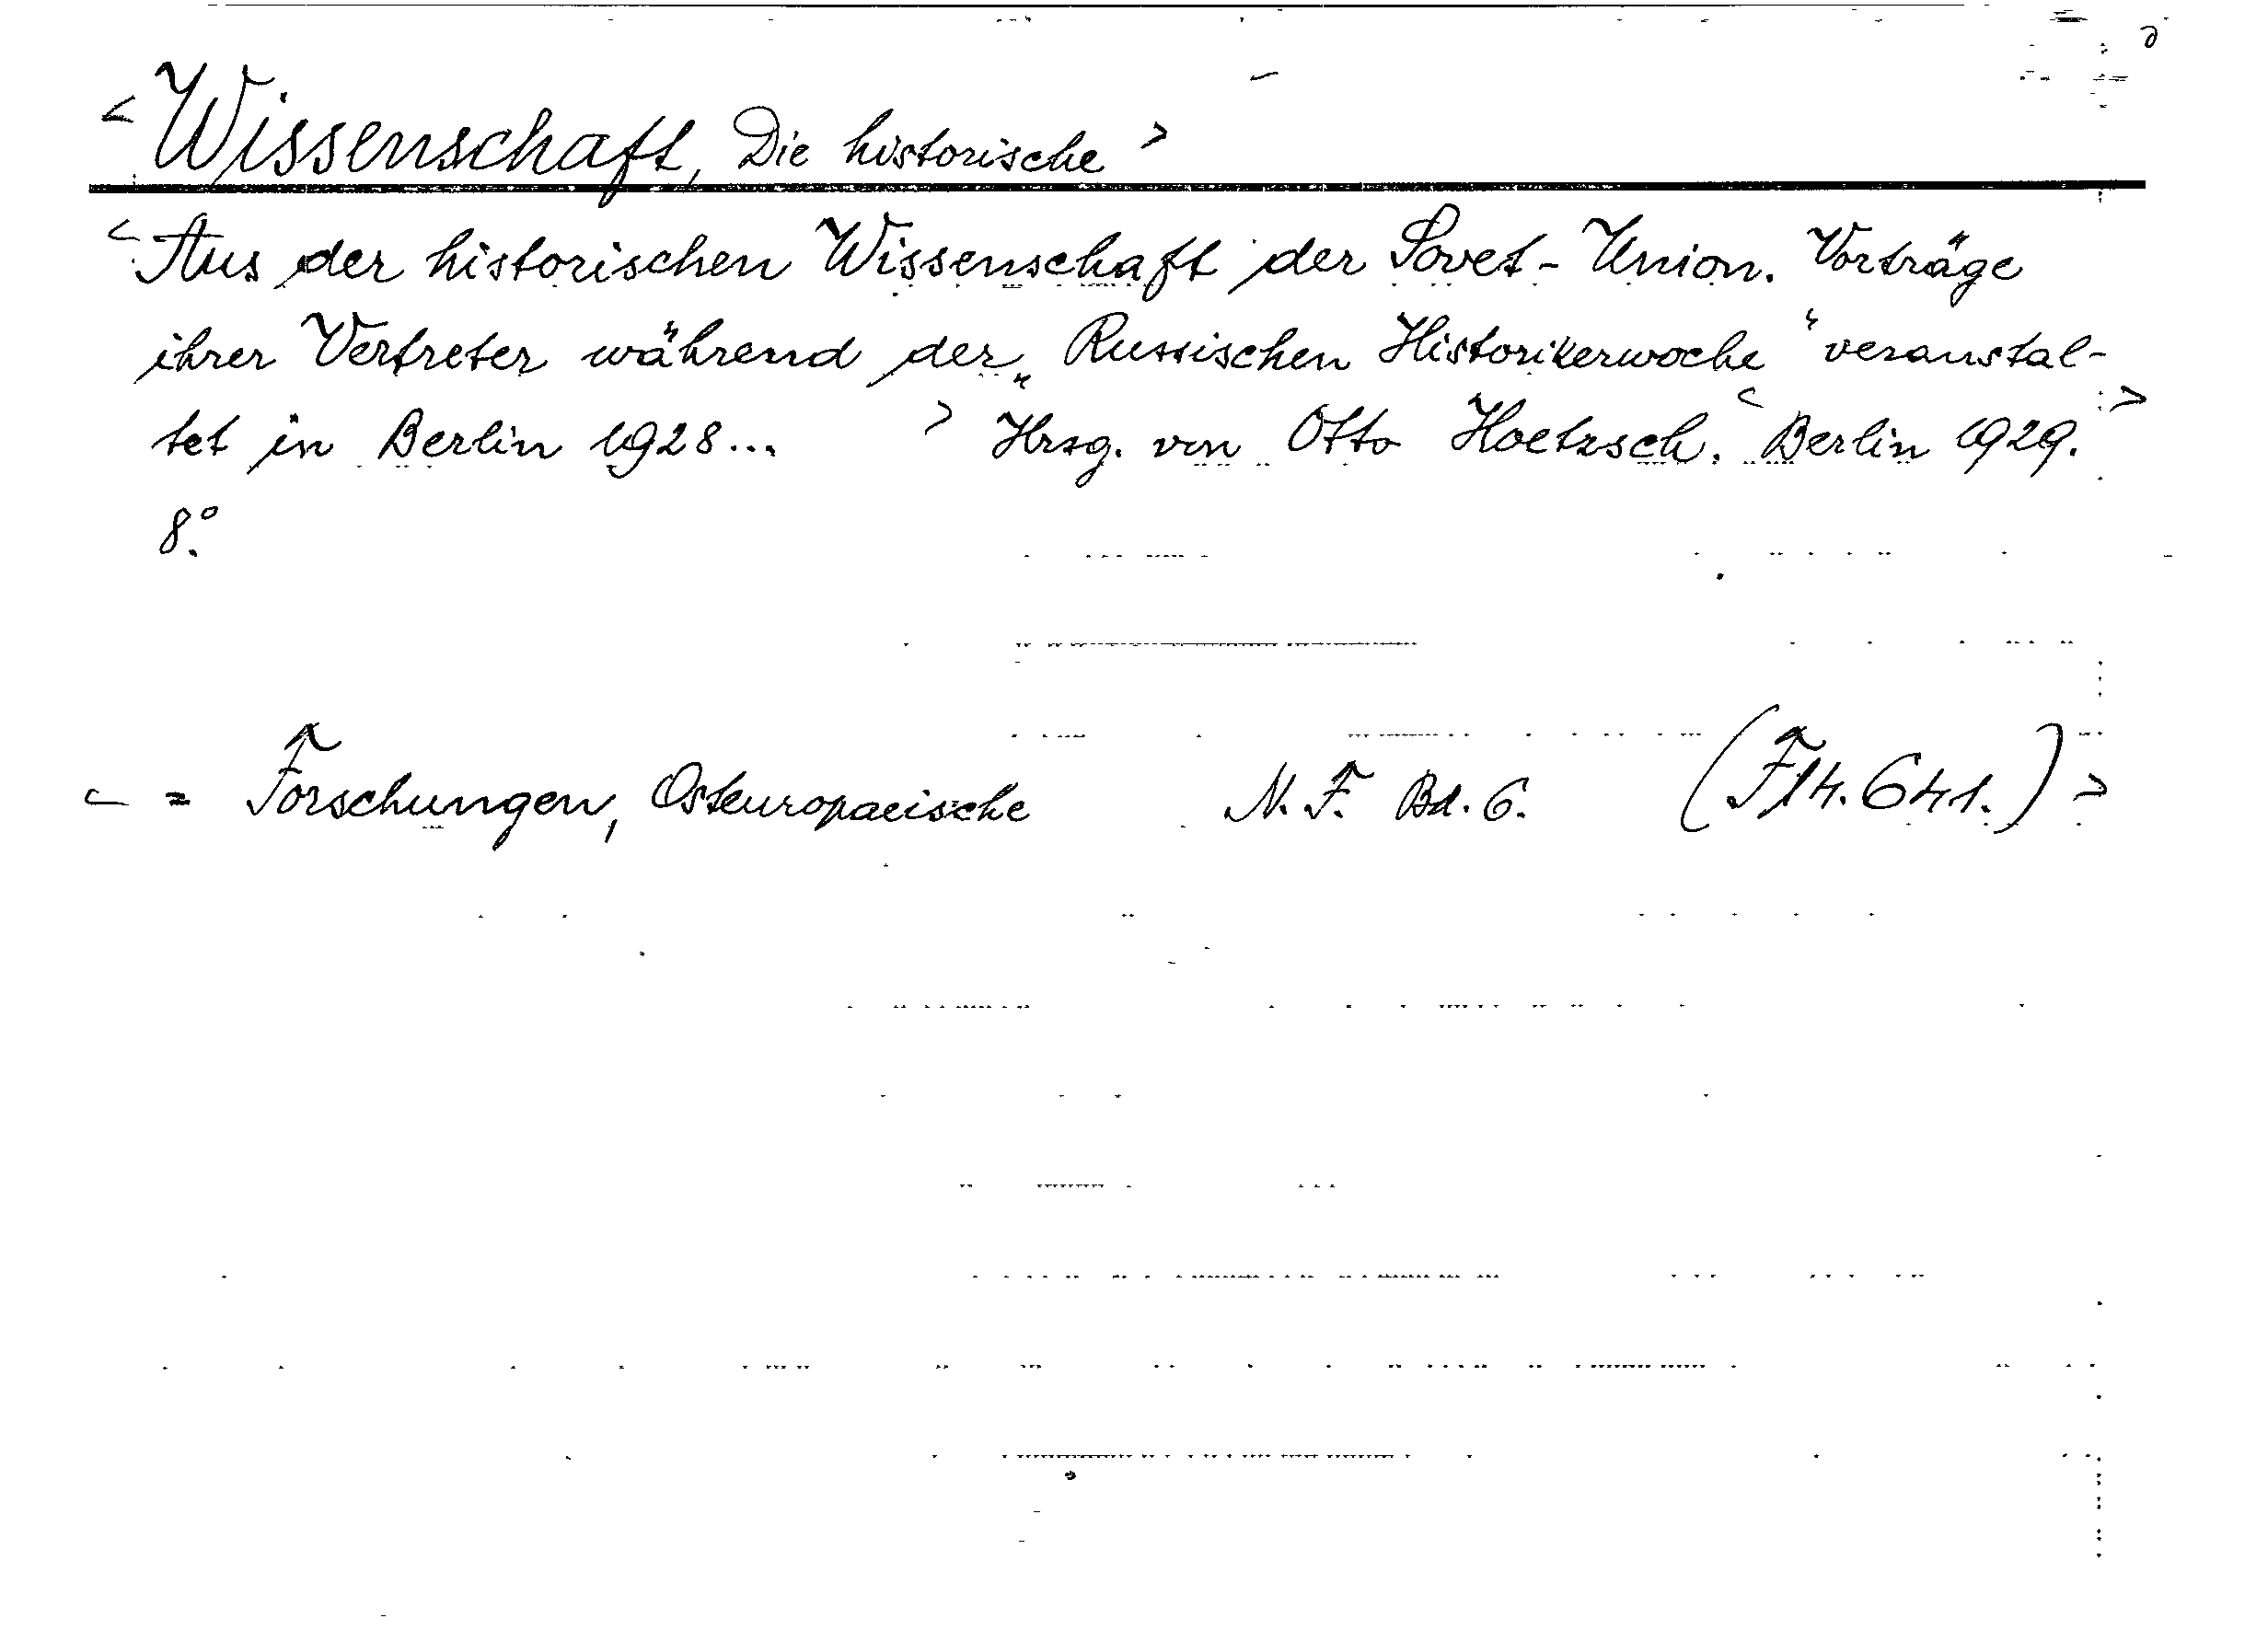 <Wissenschaft, Die historische>
<Aus der historischen Wissenschaft der Sovet-Union. Vorträge
ihrer Vertreter während der „Russischen Historikerwoche“ veranstal-
tet in Berlin 1928... > Hrsg. von Otto Hoetzsch. <Berlin 1929.>
8.°
< = Forschungen, Osteuropaeische N. F. Bd. 6. (F14.641.) >